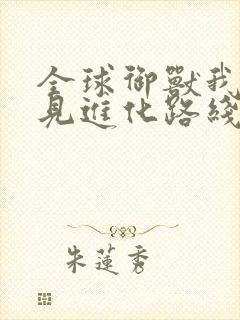 全球御獸我
見進化路綫
朱蓮秀